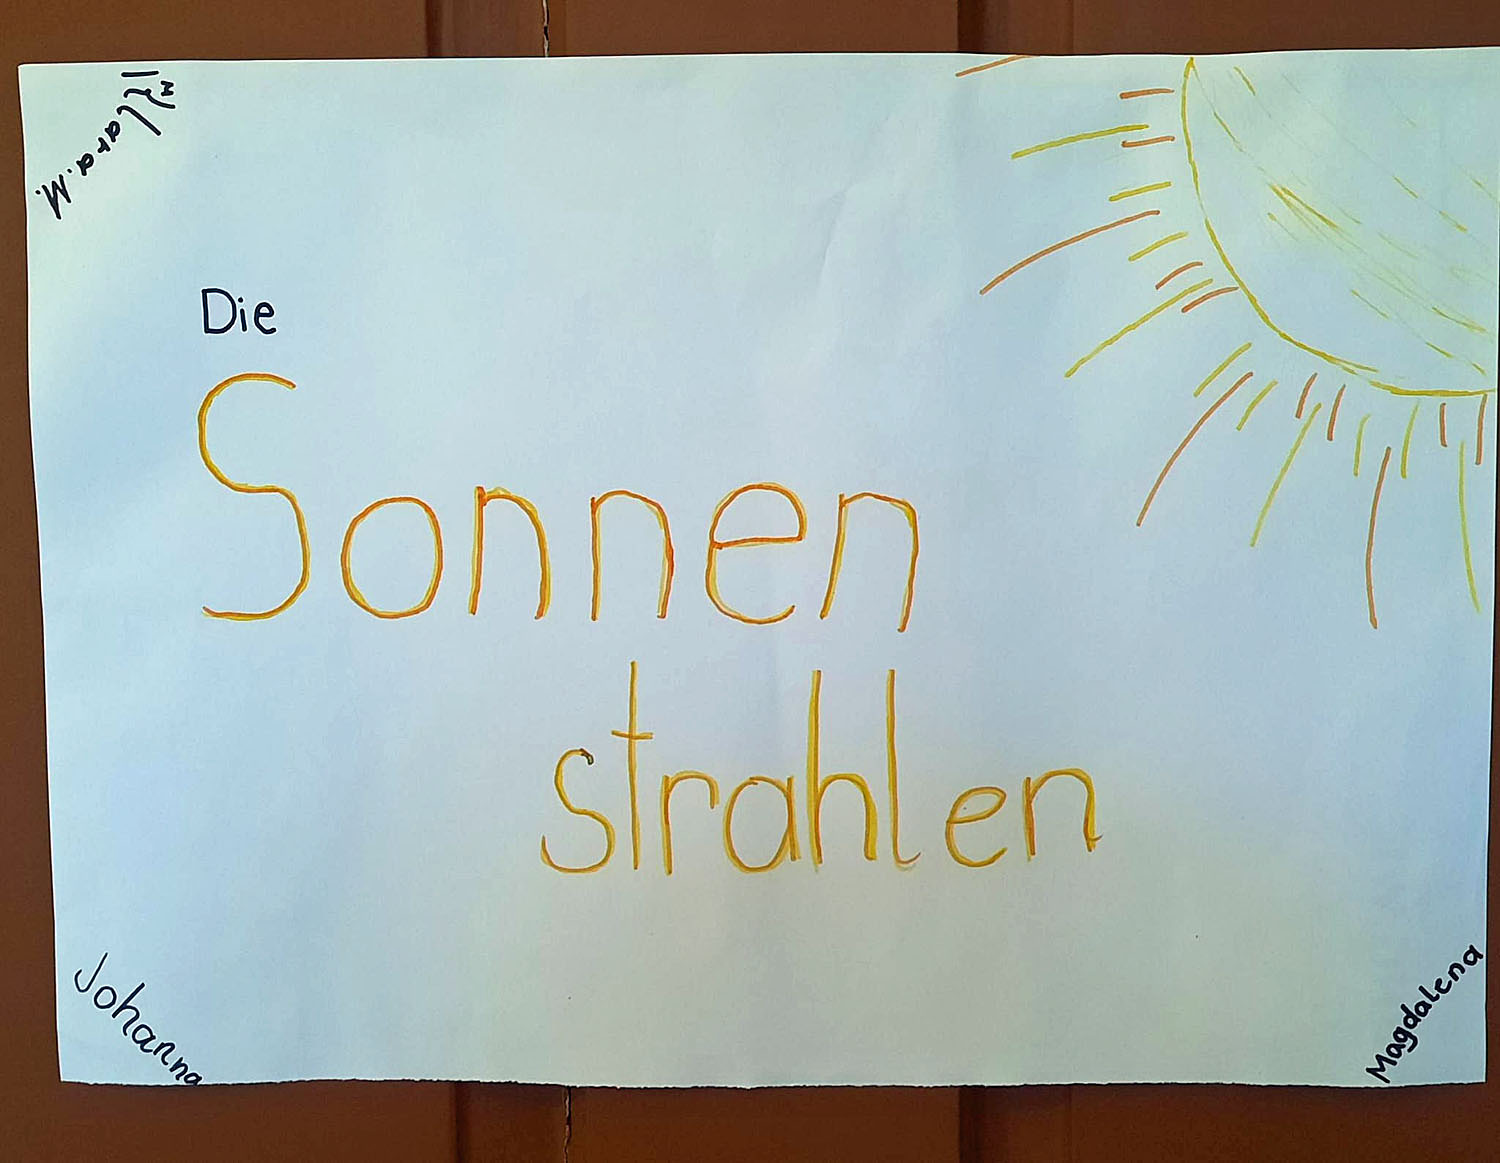 Klara.M.
Die
Sonnen
strahlen
Johanna
Magdalena